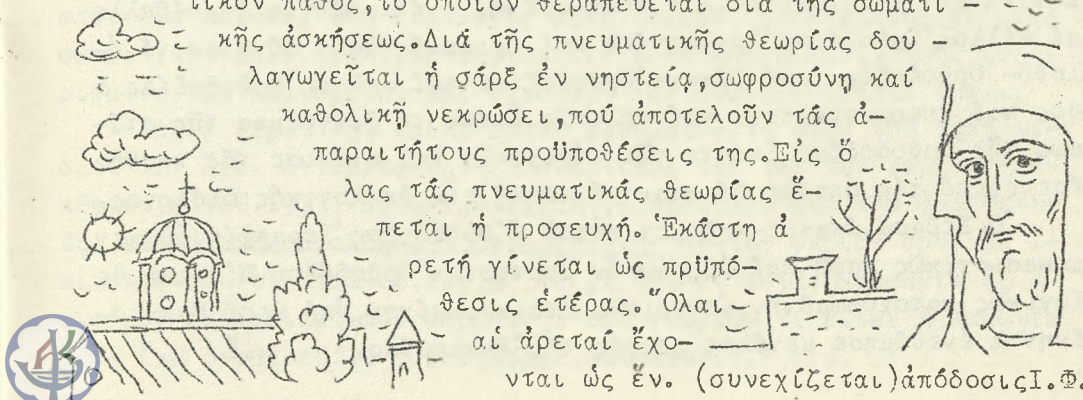 τικόν πάθος,τό ὁποῖον θεραπεύεται διά τῆς σωματι -
κῆς ἀσκήσεως.Διά τῆς πνευματικῆς θεωρίας δου -
λαγωγεῖται ἡ σάρξ ἐν νηστείᾳ,σωφροσύνῃ καί
καθολικῇ νεκρώσει,πού ἀποτελοῦν τάς ἀ-
παραιτήτους προϋποθέσεις της.Εἰς ὅ
λας τάς πνευματικάς θεωρίας ἕ-
πεται ἡ προσευχή. Ἑκάστη ἀ
ρετή γίνεται ὡς πρϋπό-
θεσις ἑτέρας. Ὅλαι -
αἱ ἀρεταί ἔχο-
νται ὡς ἕν. (συνεχίζεται)ἀπόδοσιςΙ.Φ.